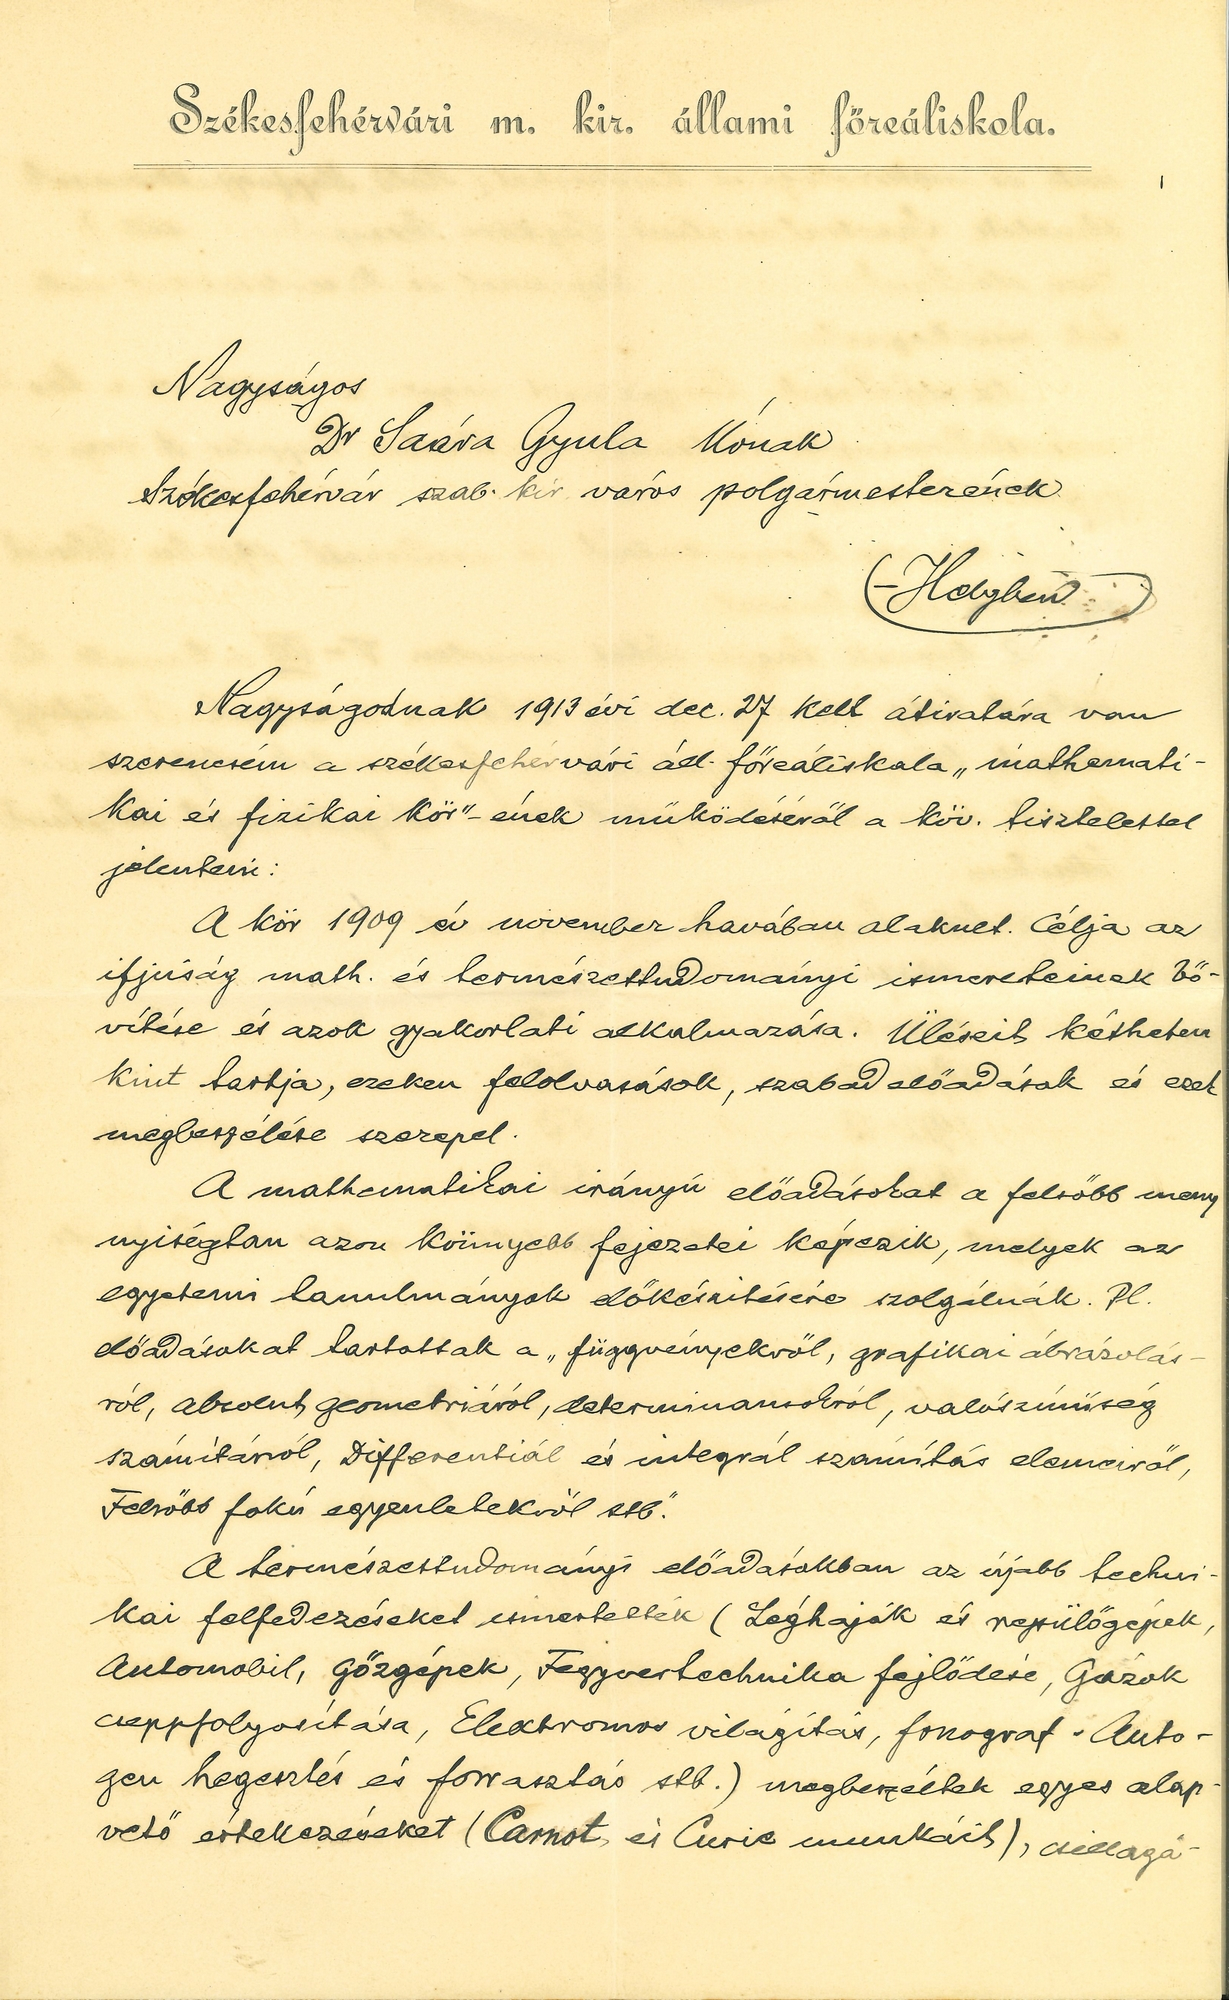 Székesfehérvári m. kir. állami főreáliskola.
1
Nagyságos
Dr Saára Gyula Úrnak
Székesfehérvár szab. kir város polgármesterének
Helyben
Nagyságodnak 1913 évi dec. 27 kelt átiratára van
szerencsém a székesfehérvári áll. főreáliskola „mathemati-
kai és fizikai kör"-ének működéséről a köv. tisztelettel
jelenteni:
A kör 1909 év november havában alakult. Célja az
ifjúság math. és természettudományi ismereteinek bő-
vítése és azok gyakorlati alkalmazása. Üléseit kétheten
kint tartja, ezeken felolvasások, szabad előadások és ezek
megbeszélése szerepel.
A mathematikai irányú előadásokat a felsőbb meny
nyiségtan azon könnyebb fejezetei képezik, melyek az
egyetemi tanulmányok előkészítésére szolgálnak. Pl.
előadásokat tartottak a „függvényekről, grafikai ábrázolás-
ról, absolut geometriáról, determinansokról, valószínűség
számításról, Differentiál és integrál számítás elemeiről,
Felsőbb fokú egyenletekről stb."
A természettudományi előadásokban az újabb techni-
kai felfedezéseket ismertették (Léghajók és repülőgépek,
Automobil, Gőzgépek, Fegyvertechnika fejlődése, Gázok
cseppfolyosítása, Elektromos világítás, fonograf - Auto-
gen hegesztés és forrasztás stb.) megbeszéltek egyes alap-
vető értekezéseket (Carnot és Curie munkáit), csillagá-